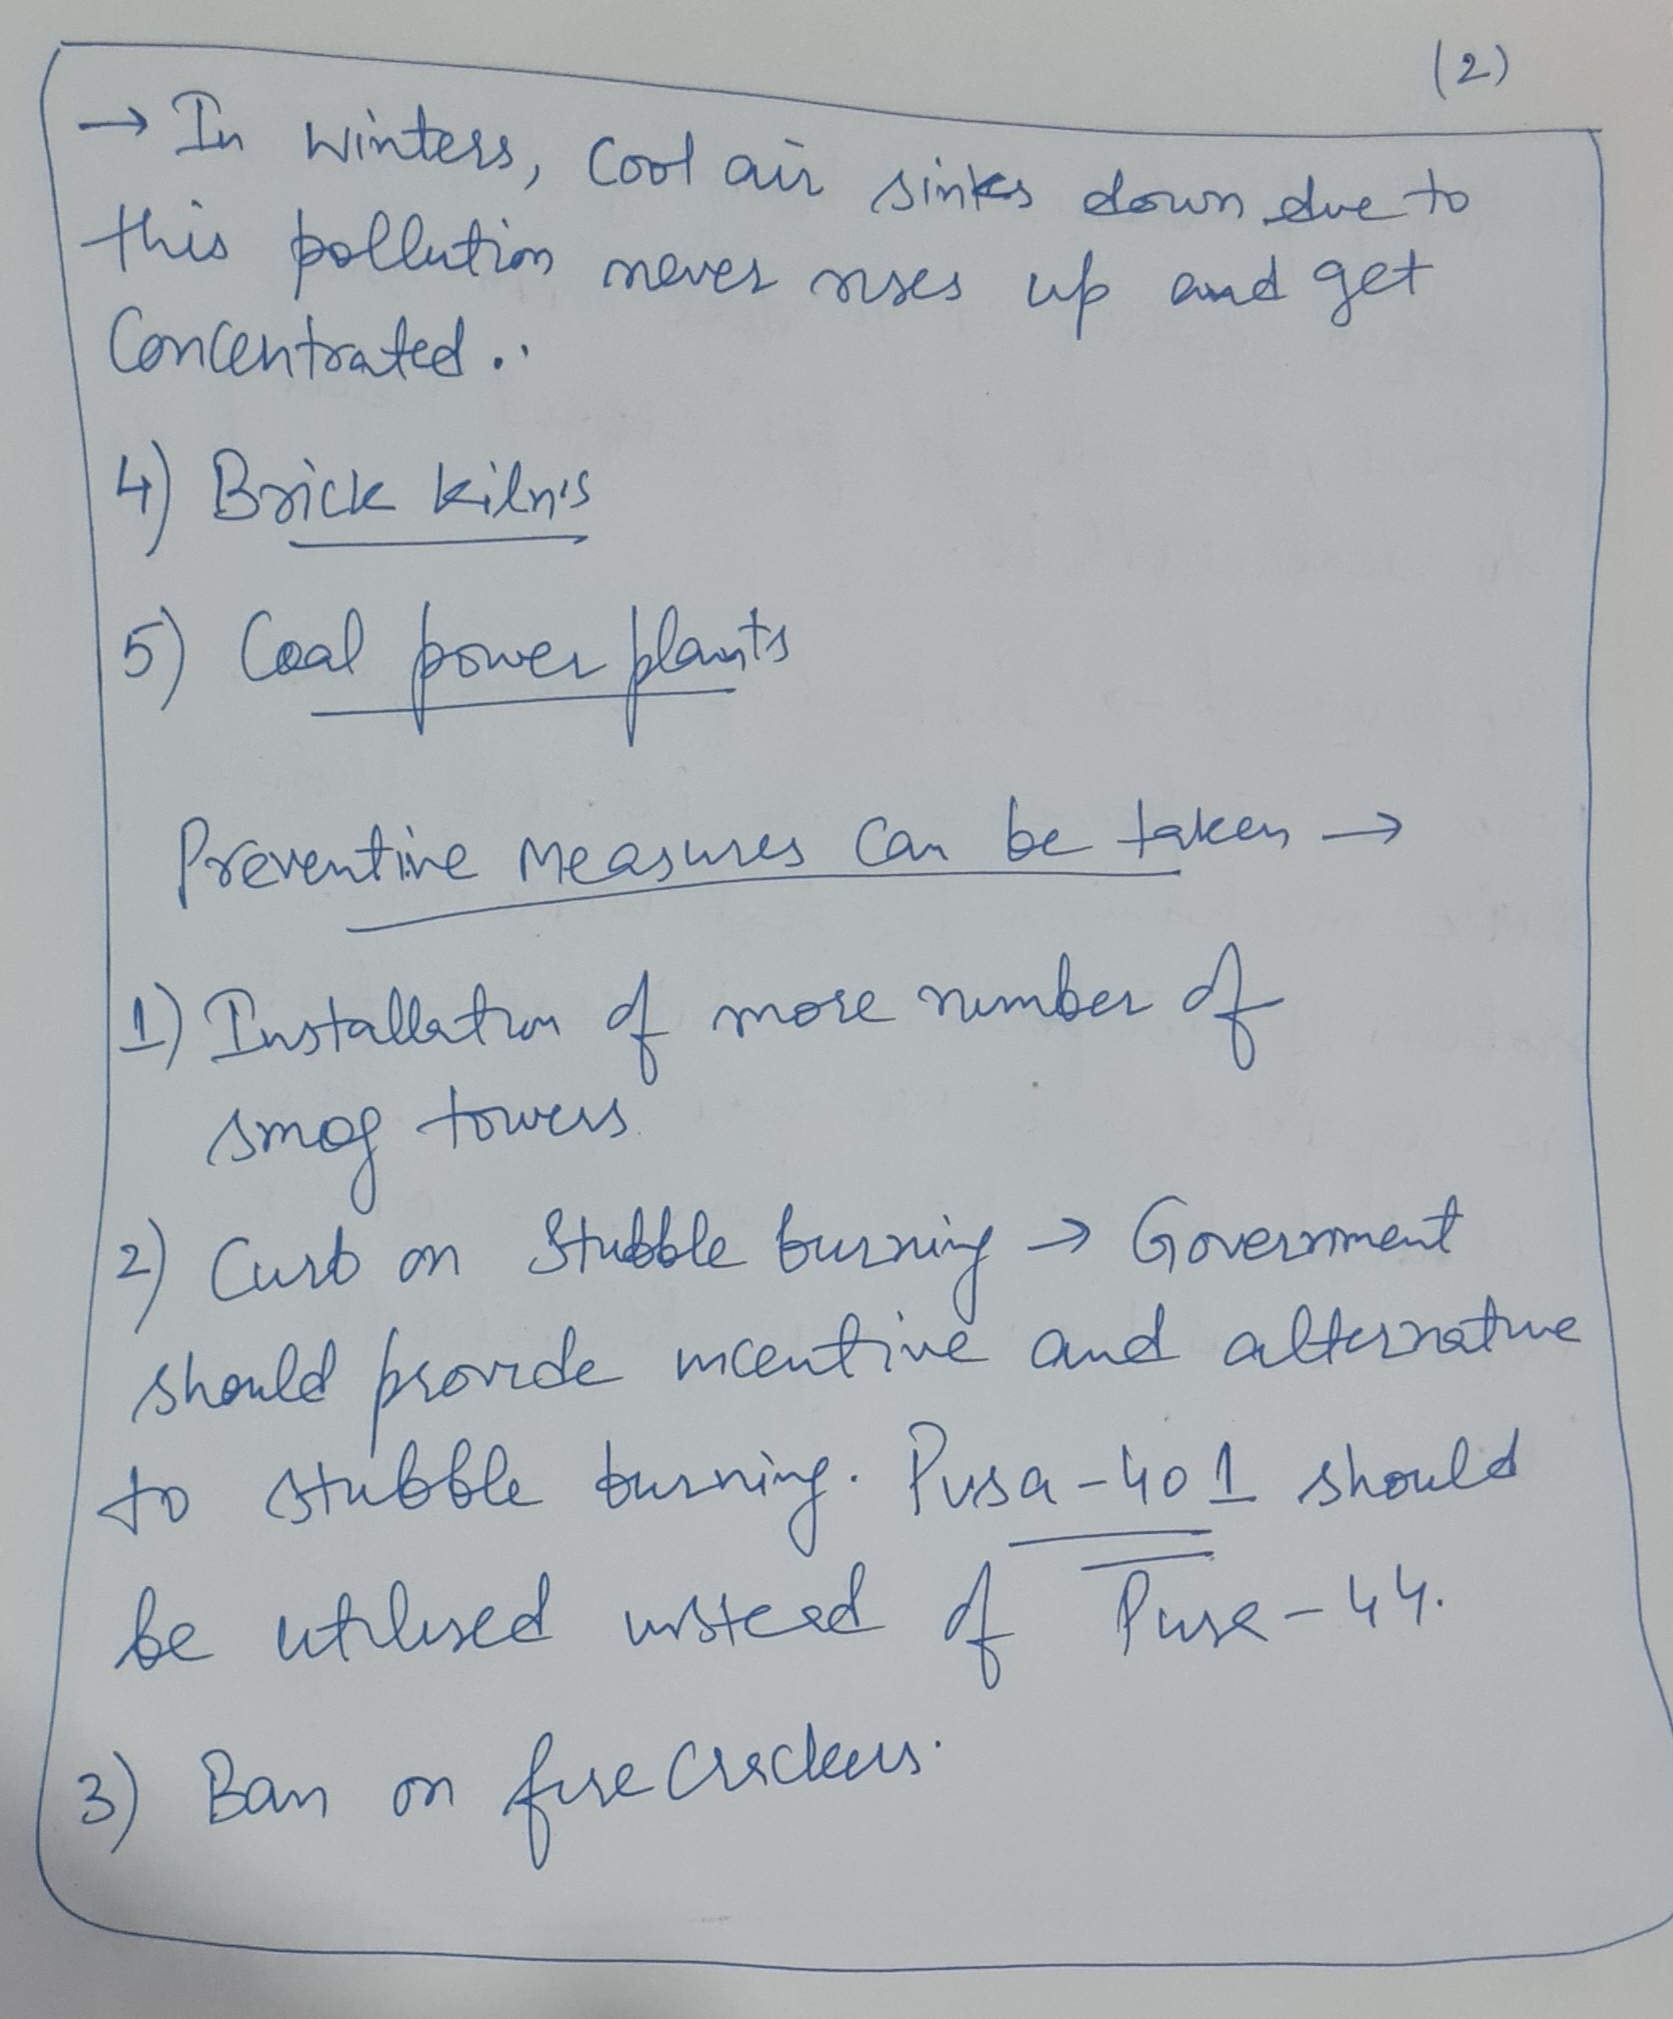 (2)
→ In winters, Cool air sinks down due to
this pollution never rises up and get
Concentrated..
4) Brick kiln's
5) Coal power plants
Preventive Measures Can be taken →
1) Installation of more number of
smog towers
2) Curb on Stubble burning → Government
should provide incentive and alternative
to stubble burning. Pusa-401 should
be utilised instead of Pusa-44.
3) Ban on fire Crackers.